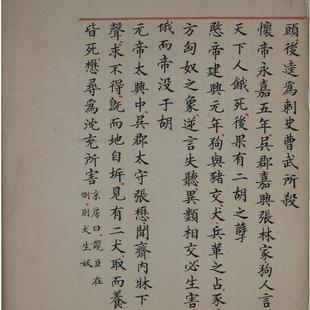 頭後逵爲刺史曹武所殺
懷帝永嘉五年吳郡嘉興張林家狗人言
天下人餓死後果有二胡之孽
愍帝建興元年狗與豬交犬兵革之占豕
方匈奴之象逆言失聽異類相交必生害
俄而帝没于胡
元帝太興中吳郡太守張懋聞齋内牀下
聲求不得旣而地自坼見有二犬取而養
皆死懋尋爲沈充所害
京房曰讒臣在
側則犬生妖